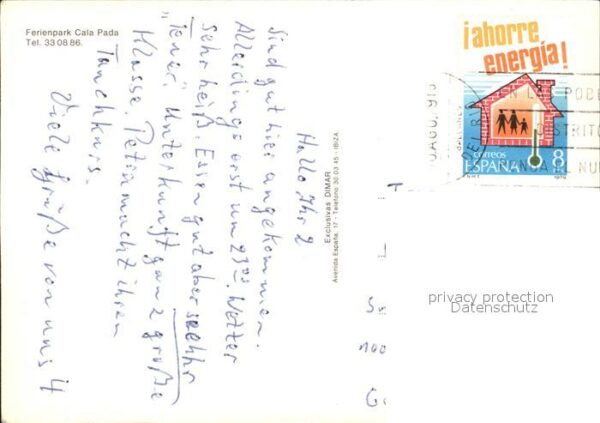 Ferienpark Cala Pada
Tel. 33 08 86.
Hallo Ihr 2
Sind gut hier angekommen.
Allerdings erst um 23⁰⁰. Wetter
sehr heiß. Essen gut aber seehhr
"Tener". Unterkunft ganz große
Klasse. Petra macht ihren
Tauchkurs.
Viele Grüße von uns 4
Exclusivas DIMAR
Avenida España, 17 - Telefono 30 03 45 - IBIZA
¡ahorre
energía!
correos
ESPAÑA 8
PTA
F.N.M.T. 1979
AGO. 
DEL RI
DISTRITO
privacy protection
Datenschutz
100